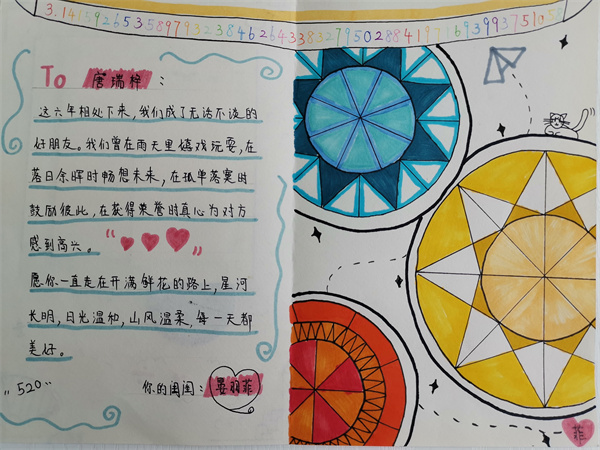 3.1415926535897932384626433832795028841971693993751058
To 唐瑞梓：
这六年相处下来，我们成了无话不谈的
好朋友。我们曾在雨天里嬉戏玩耍，在
落日余晖时畅想未来，在孤单落寞时
鼓励彼此，在获得荣誉时真心为对方
感到高兴。
愿你一直走在开满鲜花的路上，星河
长明，日光温和，山风温柔，每一天都
美好。
"520"
你的闺闺：晏羽菲
菲